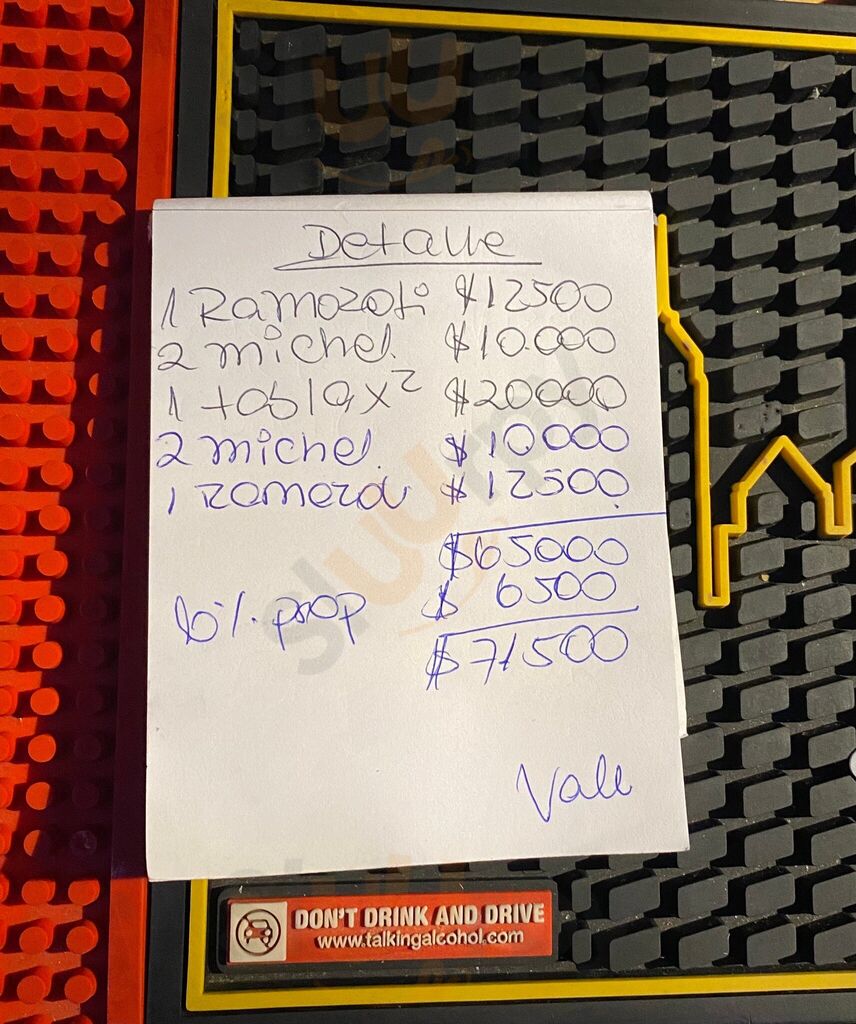 Detalle
1 Ramozoti $12500
2 michel. $10.000
1 tabla x2 $20000
2 michel. $10000
1 $12500
$65000
10%. prop $ 6500
$71500
Vale
DON'T DRINK AND DRIVE
www.talkingalcohol.com
sluurpy